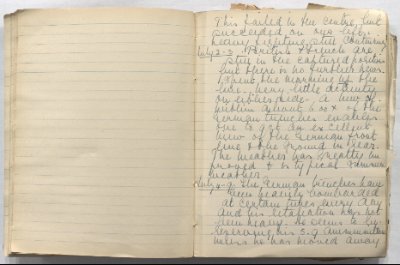 This failed in the centre, but
succeeded on our left.
heavy fighting still continuing.
July 2-3. British & French are
still in the captured position
but there is no further news.
I spent the morning up the
line. Very little activity
on either side. A new
position about 600x of the
German trenches enables
one to get an excellent
view of the German front
line & the ground in rear.
The weather has greatly im
proved & is typical summer
weather.
July 4-9. The German trenches have
been heavily bombarded
at certain times every day
and his retaliation has not
been heavy. He seems to be
reserving his 5.9 ammunition
unless he has moved away